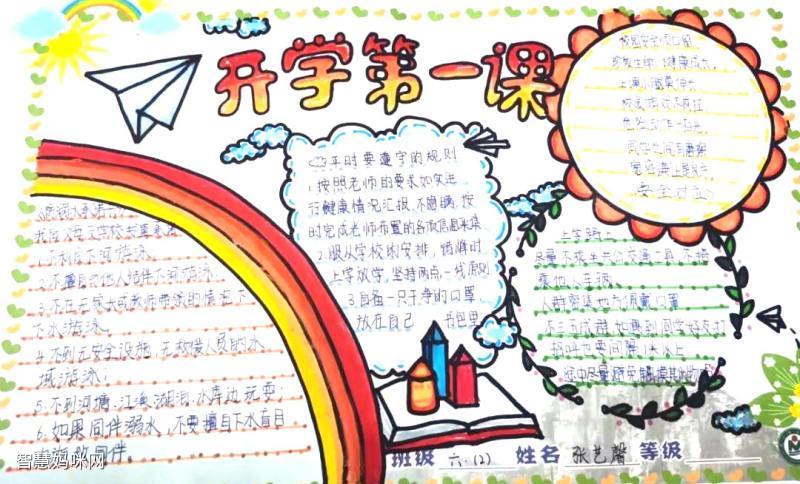 开学第一课
校园安全顺口溜
平时要遵守的规则
1.按照老师的要求如实进
行健康情况汇报,不隐瞒,按
时完成老师布置的各项信息采集
2.服从学校的安排,错峰时
上学放学,坚持两点一线原则
3.自备一只干净的口罩
放在自己 书包里
上学路上
尽量不乘坐公共交通工具,不搭
乘他人车辆
人群密集处为佩戴口罩
不三五成群,如遇到同学好友打
招呼也要间隔1米以上
途中尽量避免触摸其他物
1.不私自下河游泳
2.不擅自与他人结伴下河游泳
3.不在无家长或教师带领的情况下
下水游泳
4.不到无安全设施,无救援人员的水
域游泳;
5.不到河塘.江溪.湖泊.水库边玩耍;
6.如果同伴溺水,不要擅自下水盲目
同伴.
班级 六.(2) 姓名 张艺馨 等级
智慧妈咪网